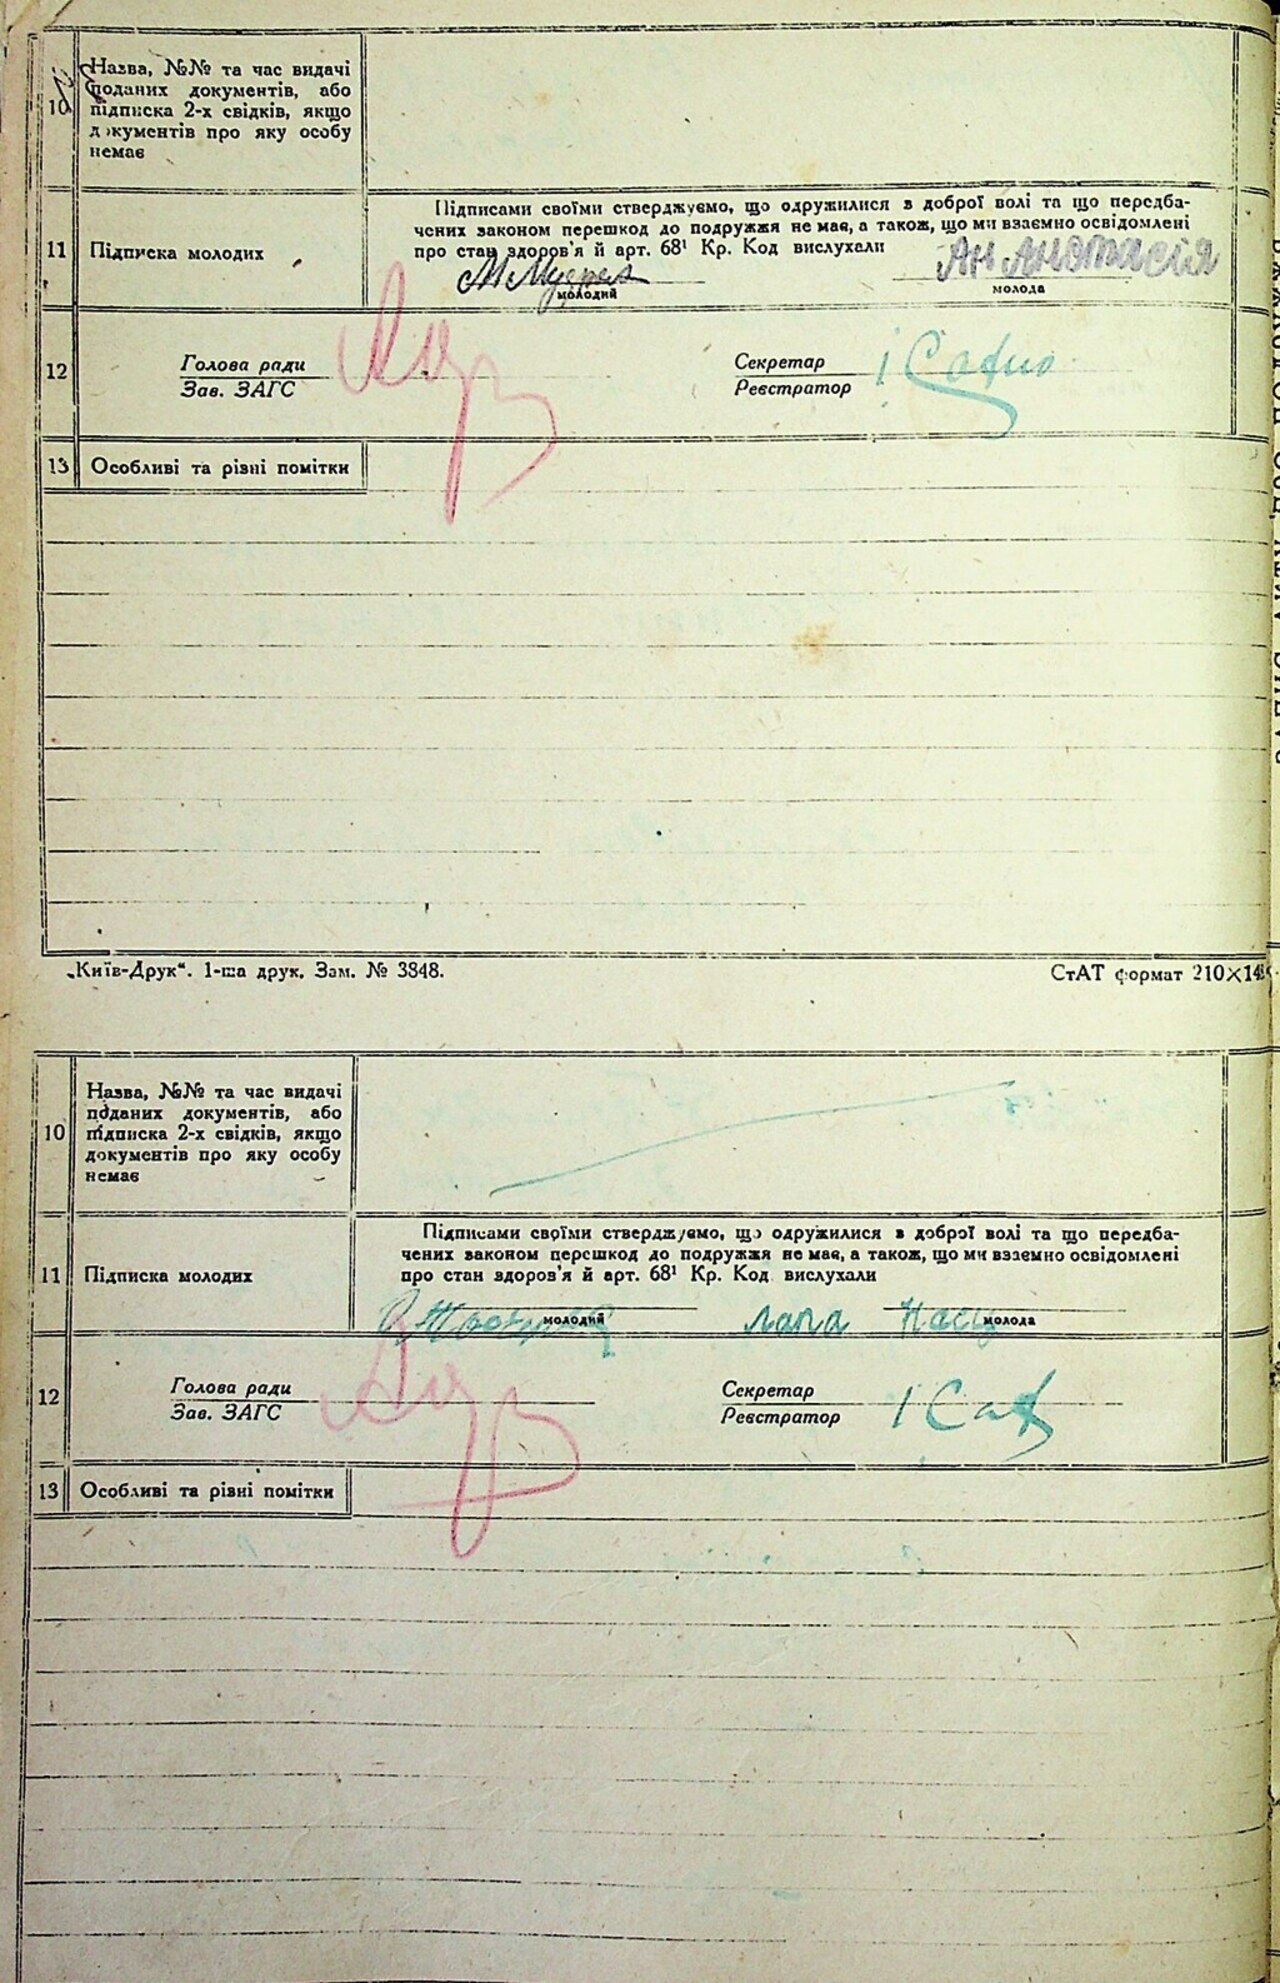 10
Назва, №№ та час видачі
поданих документів, або
підписка 2-х свідків, якщо
документів про яку особу
немає
Підписами своїми стверджуємо, що одружилися в доброї волі та що передба-
чених законом перешкод до подружжя не має, а також, що ми взаємно освідомлені
про стан здоров'я й арт. 68¹ Кр. Код вислухали
11 Підписка молодих
Анастасія
молодий молода
12
Голова ради Секретар
Зав. ЗАГС Реєстратор
13 Особливі та різні помітки
„Київ-Друк“. 1-ша друк. Зам. № 3848. СтАТ формат 210×14
10
Назва, №№ та час видачі
поданих документів, або
підписка 2-х свідків, якщо
документів про яку особу
немає
Підписами своїми стверджуємо, що одружилися в доброї волі та що передба-
чених законом перешкод до подружжя не має, а також, що ми взаємно освідомлені
про стан здоров'я й арт. 68¹ Кр. Код вислухали
11 Підписка молодих
Лапа
молодий молода
12
Голова ради Секретар
Зав. ЗАГС Реєстратор
13 Особливі та різні помітки